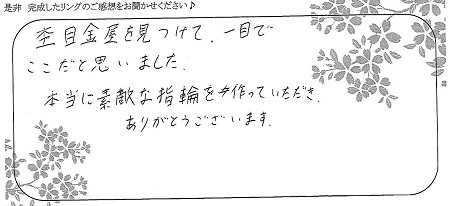 是非 完成したリングのご感想をお聞かせください♪
杢目金屋を見つけて、一目で
ここだと思いました。
本当に素敵な指輪を作っていただき、
ありがとうございます。